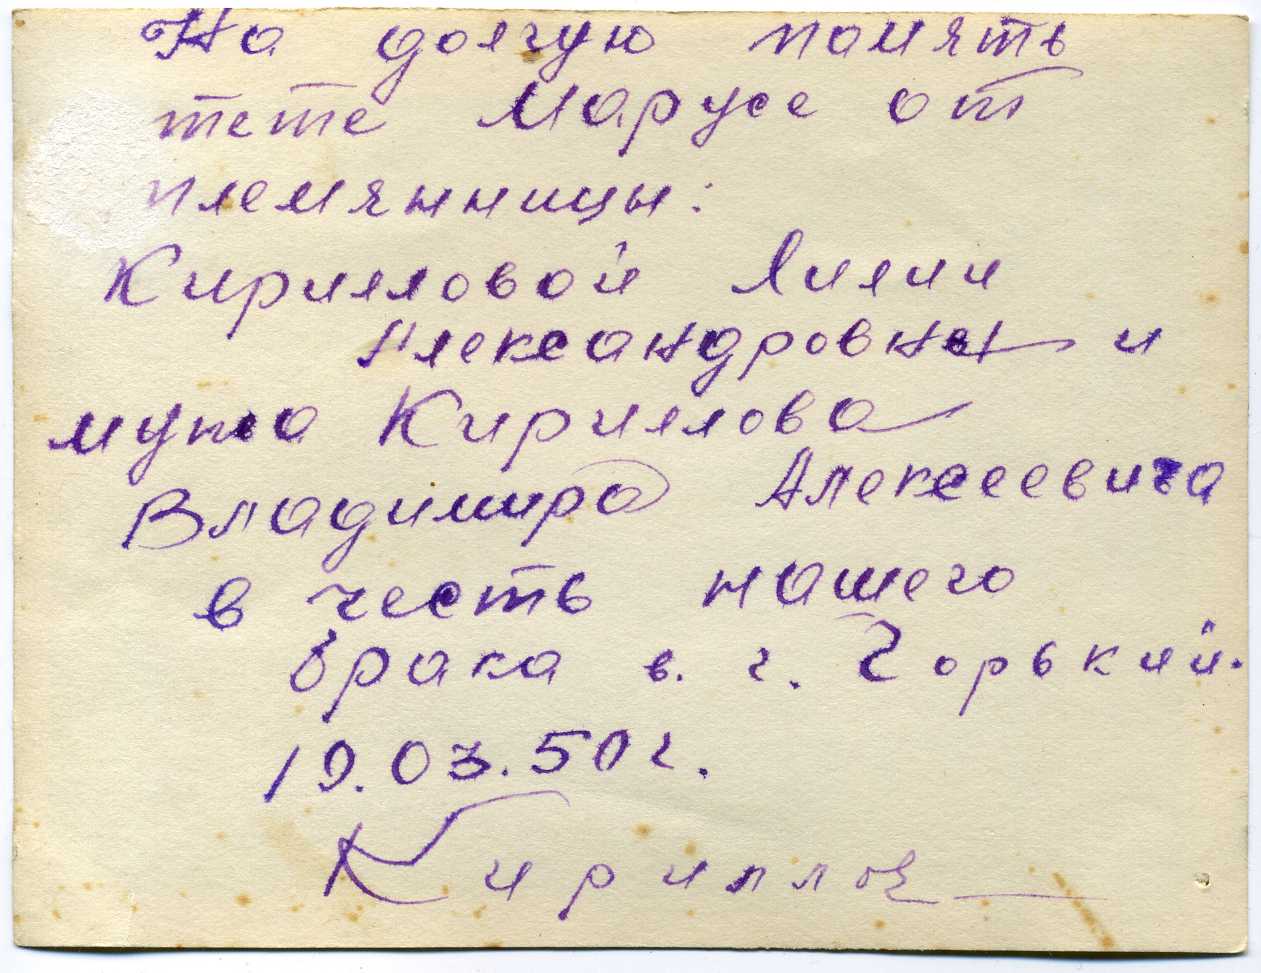 На долгую память
тете Марусе от
племянницы:
Кирилловой Лилии
Александровны и
мужа Кириллова
Владимира Алексеевича
в честь нашего
брака в. г. Горький.
19.03.50 г.
Кириллов